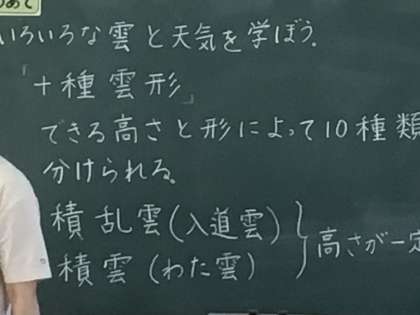 めあて
いろいろな雲と天気を学ぼう。
「十種雲形」
できる高さと形によって10種類
分けられる。
積乱雲(入道雲)
積雲(わた雲)
高さが一定